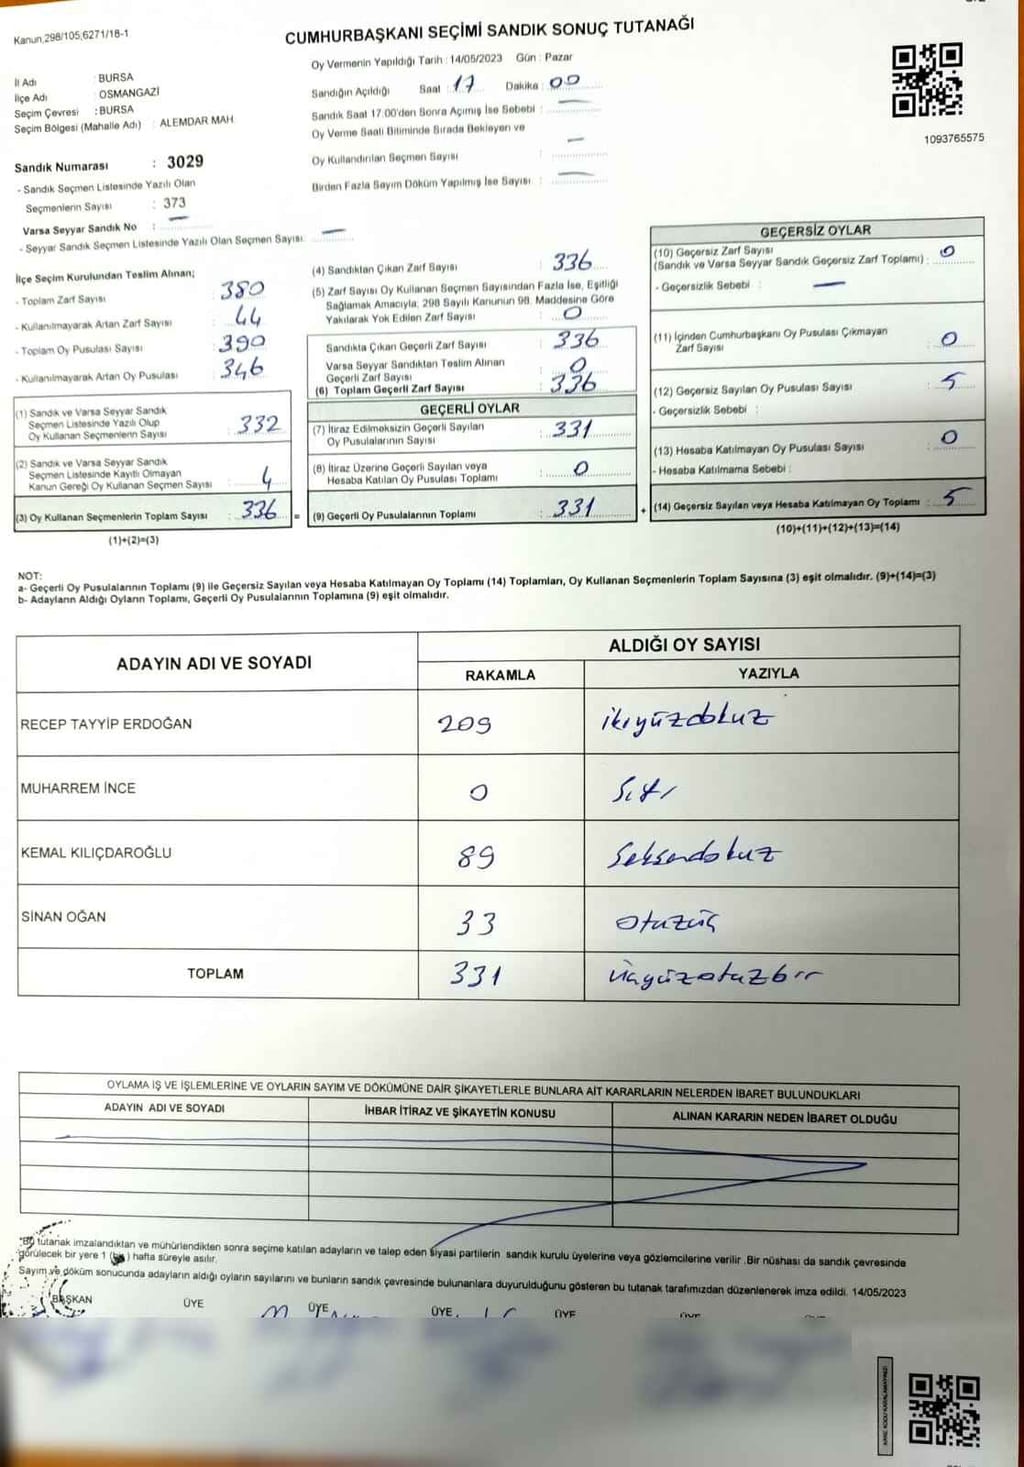 Kanun,298/105,6271/18-1
CUMHURBAŞKANI SEÇİMİ SANDIK SONUÇ TUTANAĞI
İl Adı : BURSA
İlçe Adı : OSMANGAZİ
Seçim Çevresi : BURSA
Seçim Bölgesi (Mahalle Adı) : ALEMDAR MAH.
Sandık Numarası : 3029
- Sandık Seçmen Listesinde Yazılı Olan
Seçmenlerin Sayısı : 373
Varsa Seyyar Sandık No : —
- Seyyar Sandık Seçmen Listesinde Yazılı Olan Seçmen Sayısı: —
Oy Vermenin Yapıldığı Tarih : 14/05/2023 Gün : Pazar
Sandığın Açıldığı Saat 17 Dakika : 00
Sandık Saat 17.00'den Sonra Açımış İse Sebebi : —
Oy Verme Saati Bitiminde Sırada Bekleyen ve
Oy Kullandırılan Seçmen Sayısı : —
Birden Fazla Sayım Döküm Yapılmış İse Sayısı : —
1093765575
İlçe Seçim Kurulundan Teslim Alınan;
- Toplam Zarf Sayısı : 380
- Kullanılmayarak Artan Zarf Sayısı : 44
- Toplam Oy Pusulası Sayısı : 390
- Kullanılmayarak Artan Oy Pusulası : 346
(1) Sandık ve Varsa Seyyar Sandık
Seçmen Listesinde Yazılı Olup
Oy Kullanan Seçmenlerin Sayısı : 332
(2) Sandık ve Varsa Seyyar Sandık
Seçmen Listesinde Kayıtlı Olmayan
Kanun Gereği Oy Kullanan Seçmen Sayısı : 4
(3) Oy Kullanan Seçmenlerin Toplam Sayısı : 336 =
(1)+(2)=(3)
(4) Sandıktan Çıkan Zarf Sayısı : 336
(5) Zarf Sayısı Oy Kullanan Seçmen Sayısından Fazla İse, Eşitliği
Sağlamak Amacıyla; 298 Sayılı Kanunun 98. Maddesine Göre
Yakılarak Yok Edilen Zarf Sayısı : 0
Sandıkta Çıkan Geçerli Zarf Sayısı : 336
Varsa Seyyar Sandıktan Teslim Alınan
Geçerli Zarf Sayısı : 0
(6) Toplam Geçerli Zarf Sayısı : 336
GEÇERLİ OYLAR
(7) İtiraz Edilmeksizin Geçerli Sayılan
Oy Pusulalarının Sayısı : 331
(8) İtiraz Üzerine Geçerli Sayılan veya
Hesaba Katılan Oy Pusulası Toplamı : 0
(9) Geçerli Oy Pusulalarının Toplamı : 331 +
GEÇERSİZ OYLAR
(10) Geçersiz Zarf Sayısı
(Sandık ve Varsa Seyyar Sandık Geçersiz Zarf Toplamı) : 0
- Geçersizlik Sebebi : —
(11) İçinden Cumhurbaşkanı Oy Pusulası Çıkmayan
Zarf Sayısı : 0
(12) Geçersiz Sayılan Oy Pusulası Sayısı : 5
- Geçersizlik Sebebi :
(13) Hesaba Katılmayan Oy Pusulası Sayısı : 0
- Hesaba Katılmama Sebebi :
(14) Geçersiz Sayılan veya Hesaba Katılmayan Oy Toplamı : 5
(10)+(11)+(12)+(13)=(14)
NOT:
a- Geçerli Oy Pusulalarının Toplamı (9) ile Geçersiz Sayılan veya Hesaba Katılmayan Oy Toplamı (14) Toplamları, Oy Kullanan Seçmenlerin Toplam Sayısına (3) eşit olmalıdır. (9)+(14)=(3)
b- Adayların Aldığı Oyların Toplamı, Geçerli Oy Pusulalarının Toplamına (9) eşit olmalıdır.
ADAYIN ADI VE SOYADI ALDIĞI OY SAYISI
RAKAMLA YAZIYLA
RECEP TAYYİP ERDOĞAN 209 ikiyüzdokuz
MUHARREM İNCE 0 Sıfır
KEMAL KILIÇDAROĞLU 89 Seksendokuz
SİNAN OĞAN 33 otuzüç
TOPLAM 331 üçyüzotuzbir
OYLAMA İŞ VE İŞLEMLERİNE VE OYLARIN SAYIM VE DÖKÜMÜNE DAİR ŞİKAYETLERLE BUNLARA AİT KARARLARIN NELERDEN İBARET BULUNDUKLARI
ADAYIN ADI VE SOYADI İHBAR İTİRAZ VE ŞİKAYETİN KONUSU ALINAN KARARIN NEDEN İBARET OLDUĞU
"Bu tutanak imzalandıktan ve mühürlendikten sonra seçime katılan adayların ve talep eden siyasi partilerin sandık kurulu üyelerine veya gözlemcilerine verilir. Bir nüshası da sandık çevresinde
görülecek bir yere 1 (bir) hafta süreyle asılır.
Sayım ve döküm sonucunda adayların aldığı oyların sayılarını ve bunların sandık çevresinde bulunanlara duyurulduğunu gösteren bu tutanak tarafımızdan düzenlenerek imza edildi. 14/05/2023
BAŞKAN ÜYE ÜYE ÜYE ÜYE